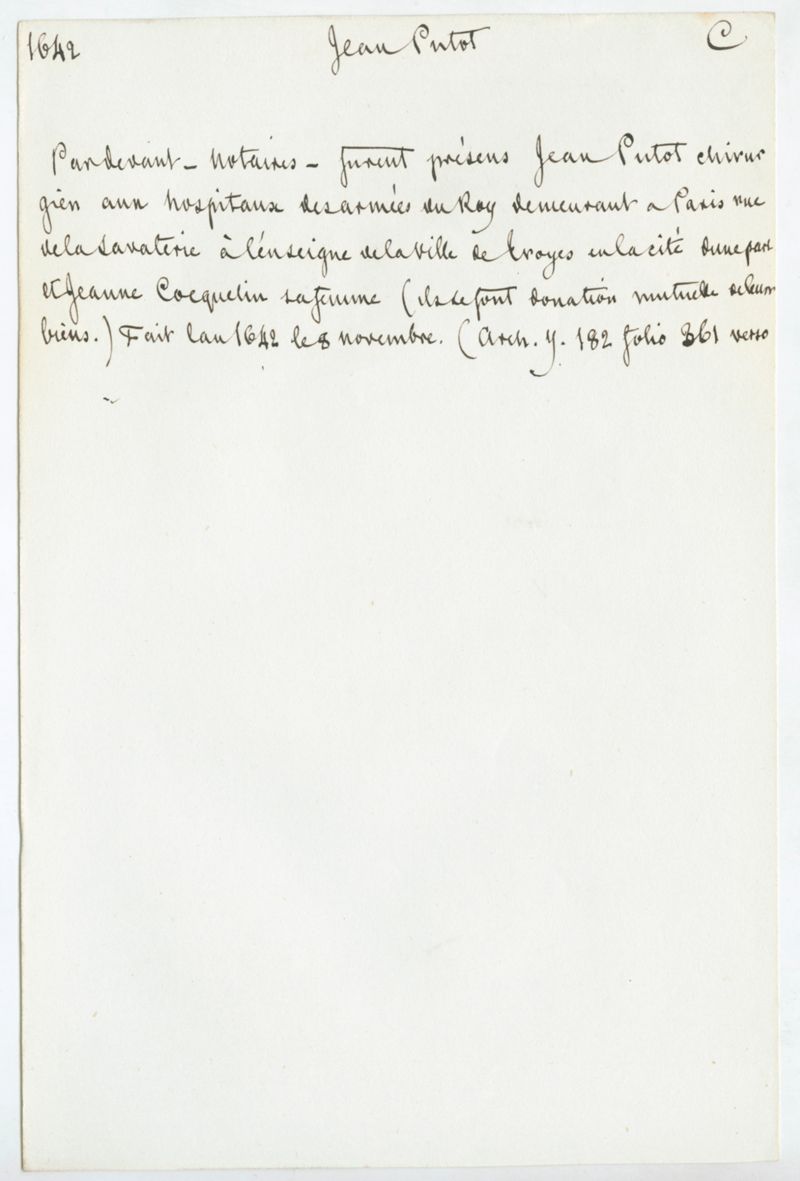 1642 Jean Putot C
Par devant _ notaires _ furent présens Jean Putot chirur
gien aux hospitaux des armées du Roy demeurant a Paris rue
de la Savaterie à l'énseigne de la ville de Troyes en la cité dune part
et Jeanne Cocquelin sa femme (ils se font donation mutuelle de leurs
biens.) Fait lan 1642 le 8 novembre. (Arch. y. 182 folio 361 verso